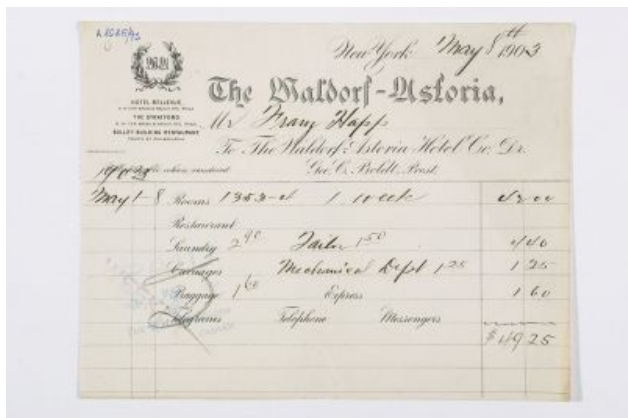 New York May 8th 1903
HOTEL BELLEVUE,
THE STRATFORD
BULLITT BUILDING RESTAURANT
The Waldorf-Astoria,
Mr Franz Happ
To The Waldorf-Astoria Hotel Co. Dr.
Geo. C. Boldt, Prest.
when rendered
May 1-8 Rooms 1 week 42 00
Restaurant
Laundry 2 90 Tailor 1 50 4 40
Carriages Mechanical Dept 1 25 1 25
Baggage 1 60 Express 1 60
Telegrams Telephone Messengers
$ 49 25